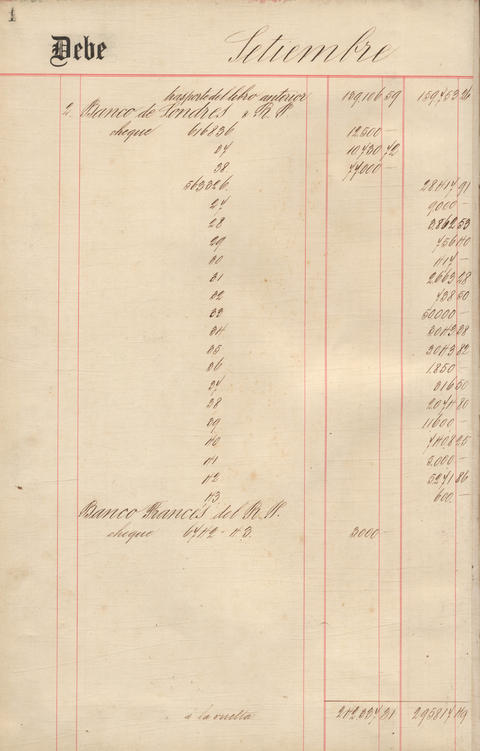 1
Debe Setiembre
trasporte del libro anterior 139106 59 159753 26
2 Banco de Londres y R. P.
cheque 616836 12500 —
37 10730 72
38 77000 —
563326. 28417 91
27 9000 —
28 3862 53
29 756 40
30 414 —
31 2663 28
32 738 50
33 50000 —
34 3043 38
35 3043 82
36 1.850 —
37 316 50
38 2071 80
39 11600 —
40 7408 25
41 3.000 —
42 5271 86
43 600 —
Banco Francés del R. P.
cheque 6742 - 43. 3000 —
á la vuelta 242.337 31 295817 49